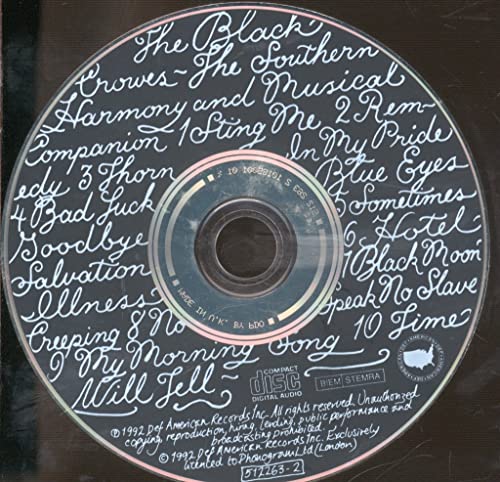 The Black
Crowes~The Southern
Harmony and Musical
Companion 1 Sting Me 2 Rem-
edy 3 Thorn In My Pride
4 Bad Luck Blue Eyes
Goodbye 5 Sometimes
Salvation 6 Hotel
Illness 7 Black Moon
Creeping 8 No Speak No Slave
9 My Morning Song 10 Time
Will Tell~
MADE IN U.K. BY PDO
COMPACT
disc
DIGITAL AUDIO
BIEM STEMRA
℗1992 Def American Records Inc. All rights reserved. Unauthorized
copying, reproduction, hiring, lending, public performance and
broadcasting prohibited.
©1992 Def American Records Inc. Exclusively
licenced to Phonogram Ltd (London)
512263-2